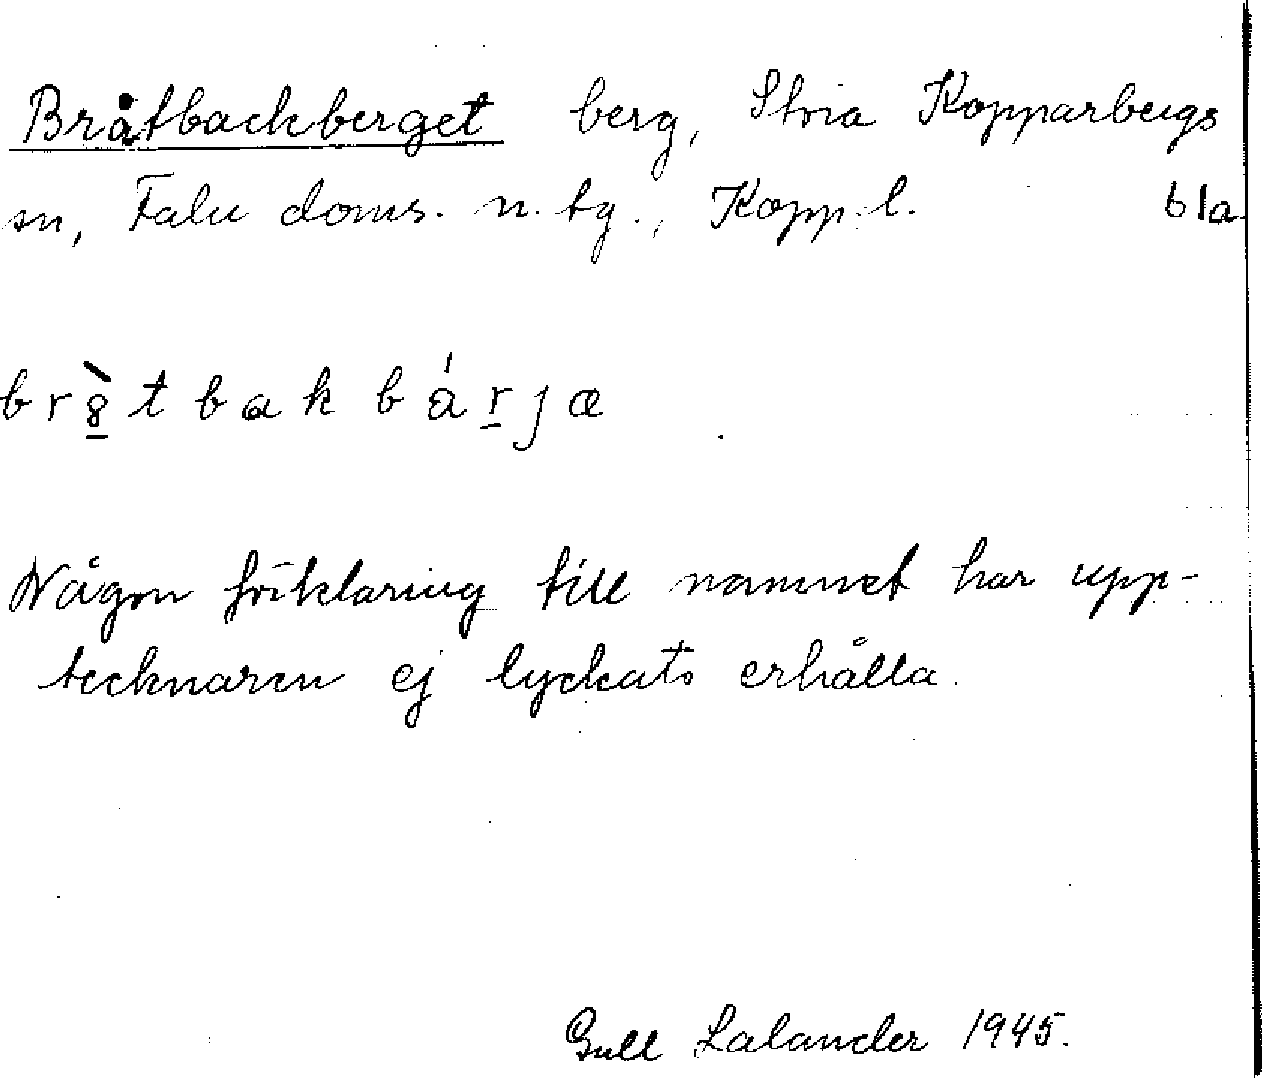 Bråtbackberget berg, Stora Kopparbergs
sn, Falu doms. n. tg., Kopp. l. b1a
Någon förklaring till namnet har upp-
tecknaren ej lyckats erhålla.
Gull Lalander 1945.